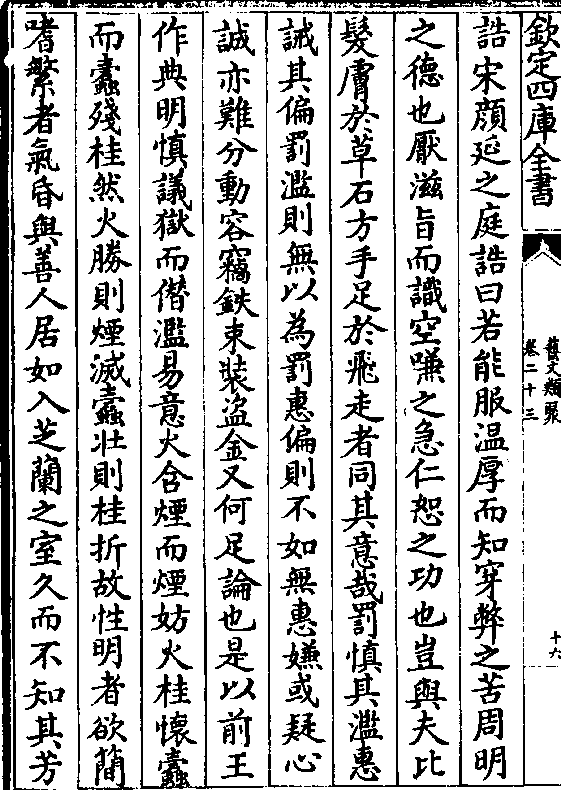 欽定四庫全書
藝文類聚
卷二十三
十六
誥宋顔延之庭誥曰若能服温厚而知穿弊之苦周明
之德也厭滋旨而識空嗛之急仁恕之功也豈與夫比
髮膚於草石方手足於飛走者同其意哉罰慎其濫惠
誡其偏罰濫則無以為罰惠偏則不如無惠嫌或疑心
誠亦難分動容竊鈇束裝盗金又何足論也是以前王
作典明慎議獄而僣濫易意火含煙而煙妨火桂懐蠧
而蠧殘桂然火勝則煙滅蠧壯則桂折故性明者欲簡
嗜繁者氣昏與善人居如入芝蘭之室久而不知其芳